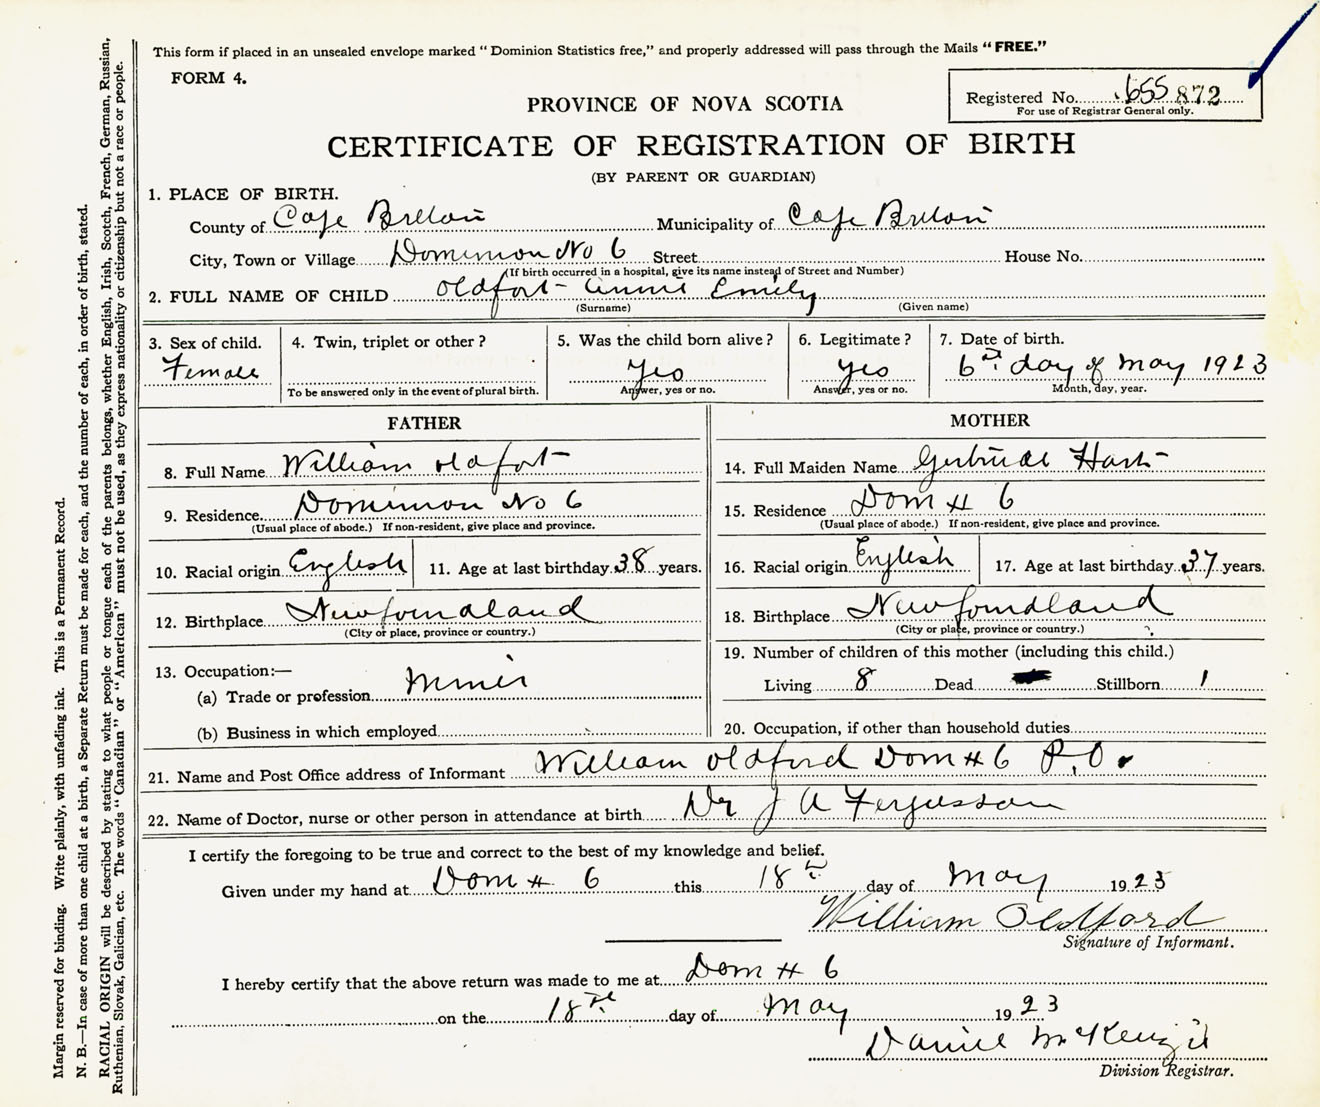 This form if placed in an unsealed envelope marked "Dominion Statistics free," and properly addressed will pass through the Mails "FREE."
FORM 4.
Registered No. 655 872
For use of Registrar General only.
PROVINCE OF NOVA SCOTIA
CERTIFICATE OF REGISTRATION OF BIRTH
(BY PARENT OR GUARDIAN)
1. PLACE OF BIRTH.
County of Cape Breton Municipality of Cape Breton
City, Town or Village Dominion No 6 Street House No.
(If birth occurred in a hospital, give its name instead of Street and Number)
2. FULL NAME OF CHILD Oldfort - Annie Emily
(Surname) (Given name)
3. Sex of child. 4. Twin, triplet or other? 5. Was the child born alive? 6. Legitimate? 7. Date of birth.
Female Yes Yes 6th day of May 1923
To be answered only in the event of plural birth. Answer, yes or no. Answer, yes or no. Month, day, year.
FATHER
8. Full Name William Oldfort
9. Residence Dominion No 6
(Usual place of abode.) If non-resident, give place and province.
10. Racial origin English 11. Age at last birthday 38 years.
12. Birthplace Newfoundland
(City or place, province or country.)
13. Occupation:—
(a) Trade or profession Miner
(b) Business in which employed
MOTHER
14. Full Maiden Name Gertrude Hart
15. Residence Dom # 6
(Usual place of abode.) If non-resident, give place and province.
16. Racial origin English 17. Age at last birthday 37 years.
18. Birthplace Newfoundland
(City or place, province or country.)
19. Number of children of this mother (including this child.)
Living 8 Dead Stillborn 1
20. Occupation, if other than household duties
21. Name and Post Office address of Informant William Oldford Dom # 6 P.O.
22. Name of Doctor, nurse or other person in attendance at birth Dr J A Fergusson
I certify the foregoing to be true and correct to the best of my knowledge and belief.
Given under my hand at Dom # 6 this 18th day of May 1923
William Oldford
Signature of Informant.
I hereby certify that the above return was made to me at Dom # 6
on the 18th day of May 1923
Daniel McKenzie
Division Registrar.
Margin reserved for binding. Write plainly, with unfading ink. This is a Permanent Record.
N. B.—In case of more than one child at a birth, a Separate Return must be made for each, and the number of each, in order of birth, stated.
RACIAL ORIGIN will be described by stating to what people or tongue each of the parents belongs, whether English, Irish, Scotch, French, German, Russian,
Ruthenian, Slovak, Galician, etc. The words "Canadian" or "American" must not be used, as they express nationality or citizenship but not a race or people.